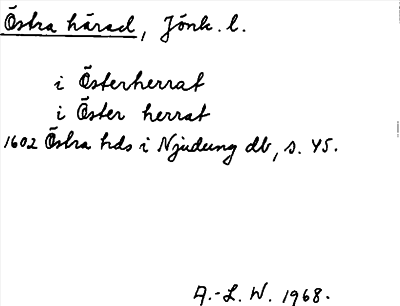 Östra härad, Jönk. l.
i Österherrat
i Öster herrat
1602 Östra hds i Njudung db, s. 45.
A.-L. W. 1968.